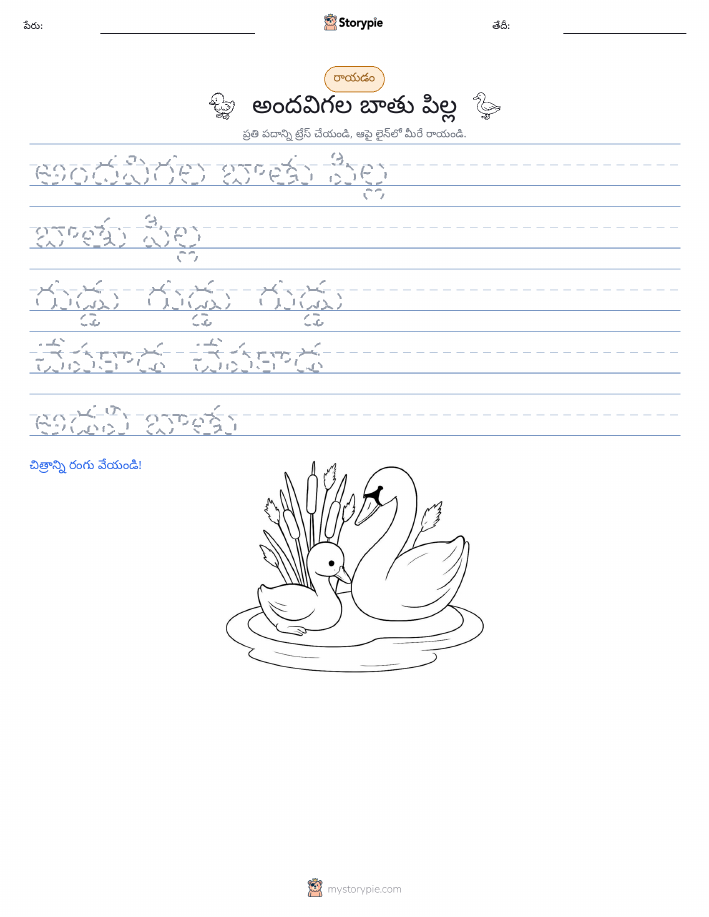 పేరు:
Storypie
తేదీ:
రాయడం
అందవిగల బాతు పిల్ల
ప్రతి పదాన్ని ట్రేస్ చేయండి, ఆపై లైన్‌లో మీరే రాయండి.
అందవిగల బాతు పిల్ల
బాతు పిల్ల
గుడ్డు గుడ్డు గుడ్డు
చేపకాడ చేపకాడ
అడవి బాతు
చిత్రాన్ని రంగు వేయండి!
mystorypie.com